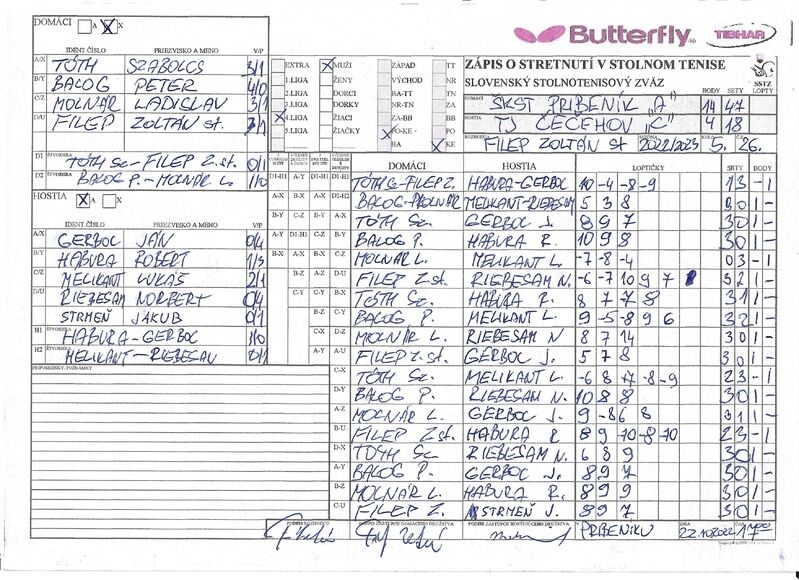 DOMÁCI A X
Butterfly TIBHAR
IDENT.ČÍSLO PRIEZVISKO A MENO V/P
A/X TÓTH SZABOLCS 3/1
B/Y BALOG PETER 4/0
C/Z MOLNÁR LADISLAV 3/1
D/U FILEP ZOLTÁN st. 3/1
D1 ŠTVORHRA TÓTH Sc-FILEP Z.st. 0/1
D2 ŠTVORHRA BALOG P.-MOLNÁR L. 1/0
HOSTIA X A X
IDENT.ČÍSLO PRIEZVISKO A MENO V/P
A/X GERBOC JÁN 0/4
B/Y HABURA RÓBERT 1/3
C/Z MELIKANT LUKÁŠ 2/1
D/U RIEBESAM NORBERT 0/4
STRMEŇ JAKUB 0/1
H1 ŠTVORHRA HABURA-GERBOC 1/0
H2 ŠTVORHRA MELIKANT-RIEBESAM 0/1
PRIPOMIENKY, POZNÁMKY
EXTRA MUŽI ZÁPAD TT
1.LIGA ŽENY VÝCHOD NR
2.LIGA DORCI BA-TT TN
3.LIGA DORKY NR-TN ZA
4.LIGA ŽIACI ZA-BB BB
5.LIGA ŽIAČKY PO-KE PO
BA KE
ZÁPIS O STRETNUTÍ V STOLNOM TENISE
SLOVENSKÝ STOLNOTENISOVÝ ZVÄZ SSTZ
BODY SETY LOPTY
DOMÁCI ŠKST PRIBENÍK "A" 14 47
HOSTIA TJ ČEČEHOV "C" 4 18
ROZHODCA FILEP ZOLTÁN st 2022/2023 5. 26.
DOMÁCI HOSTIA LOPTIČKY SETY BODY
D1-H1 TÓTH Sc-FILEP Z. HABURA-GERBOC 10 -4 -8 -9 1 3 - 1
D2-H2 BALOG-MOLNÁR MELIKANT-RIEBESAM 5 3 8 3 0 1 -
A-X TÓTH Sz. GERBOC J. 8 9 7 3 0 1 -
B-Y BALOG P. HABURA R. 10 9 8 3 0 1 -
C-Z MOLNÁR L. MELIKANT L. -7 -8 -4 0 3 - 1
D-U FILEP Z.st. RIEBESAM N. -6 -7 10 9 7 3 2 1 -
B-X TÓTH Sz. HABURA R. 8 7 -7 8 3 1 1 -
C-Y BALOG P. MELIKANT L. 9 -5 -8 9 6 3 2 1 -
D-Z MOLNÁR L. RIEBESAM N. 8 7 14 3 0 1 -
A-U FILEP Z.st. GERBOC J. 5 7 8 3 0 1 -
C-X TÓTH Sz. MELIKANT L. -6 8 +7 -8 -9 2 3 - 1
D-Y BALOG P. RIEBESAM N. 10 8 8 3 0 1 -
A-Z MOLNÁR L. GERBOC J. 9 -8 6 8 3 1 1 -
B-U FILEP Z.st. HABURA R. 8 9 -10 -8 -10 2 3 - 1
D-X TÓTH Sc. RIEBESAM N. 6 8 9 3 0 1 -
A-Y BALOG P. GERBOC J. 8 9 7 3 0 1 -
B-Z MOLNÁR L. HABURA R. 8 9 9 3 0 1 -
C-U FILEP Z. STRMEŇ J. 8 9 7 3 0 1 -
PODPIS ROZHODCU PODPIS ZÁSTUPCU DOMÁCEHO DRUŽSTVA PODPIS ZÁSTUPCU HOSŤUJÚCEHO DRUŽSTVA V PRIBENÍKU DŇA 22.10.2022 ČAS 17:00